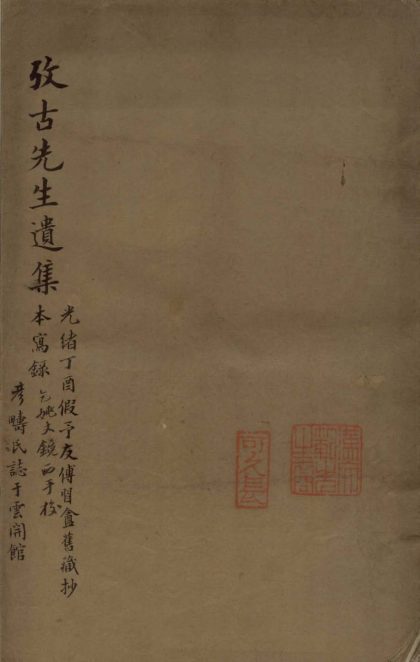 攷古先生遺集
光緒丁酉假予友傅習盦舊藏抄
本寫錄乞姚丈鏡西手校
彥疇氏誌于雲間館